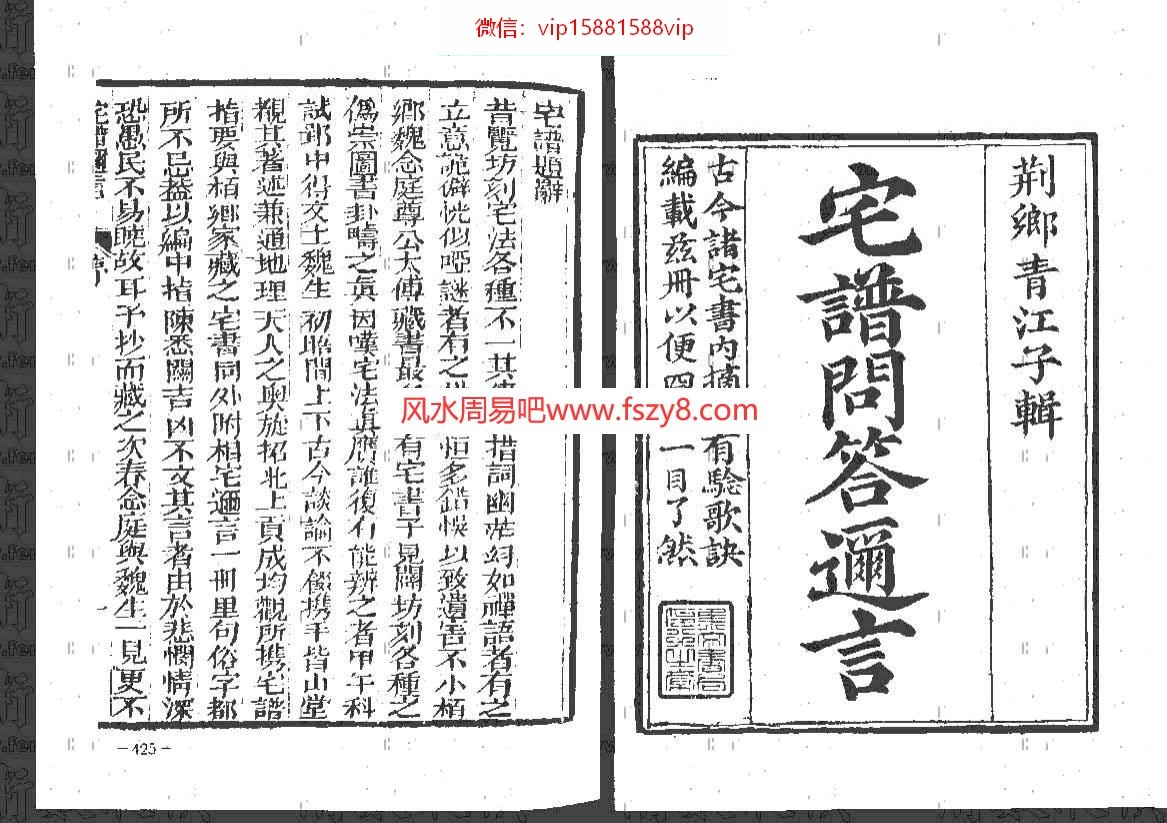 微信：vip15881588vip
荆鄉青江子輯
宅譜問答邇言
古今諸宅書內摘 有驗歌訣
編載茲冊以便 一目了然
风水周易吧www.fszy8.com
宅譜題辭
昔覽坊刻宅法各種不一其 措詞幽茫 如禪語者有之
立意詭僻恍似啞謎者有之 恒多錯悞以致遺害不小栢
鄉魏念庭尊公太傅藏書最 有宅書予見闢坊刻各種之
偽崇圖書卦疇之眞因嘆宅法眞贋誰復有能辨之者甲午科
試郢中得交士魏生初晤間上下古今談論不倦携手皆山堂
覩其著述兼通地理天人之奧旋招北上貢成均觀所携宅譜
指要與栢鄉家藏之宅書同外附相宅邇言一冊里句俗字都
所不忌益以編中指陳悉關吉凶不文其言者由於悲憫情深
恐愚民不易曉故耳予抄而藏之次春念庭與魏生一見更不
一
－425－